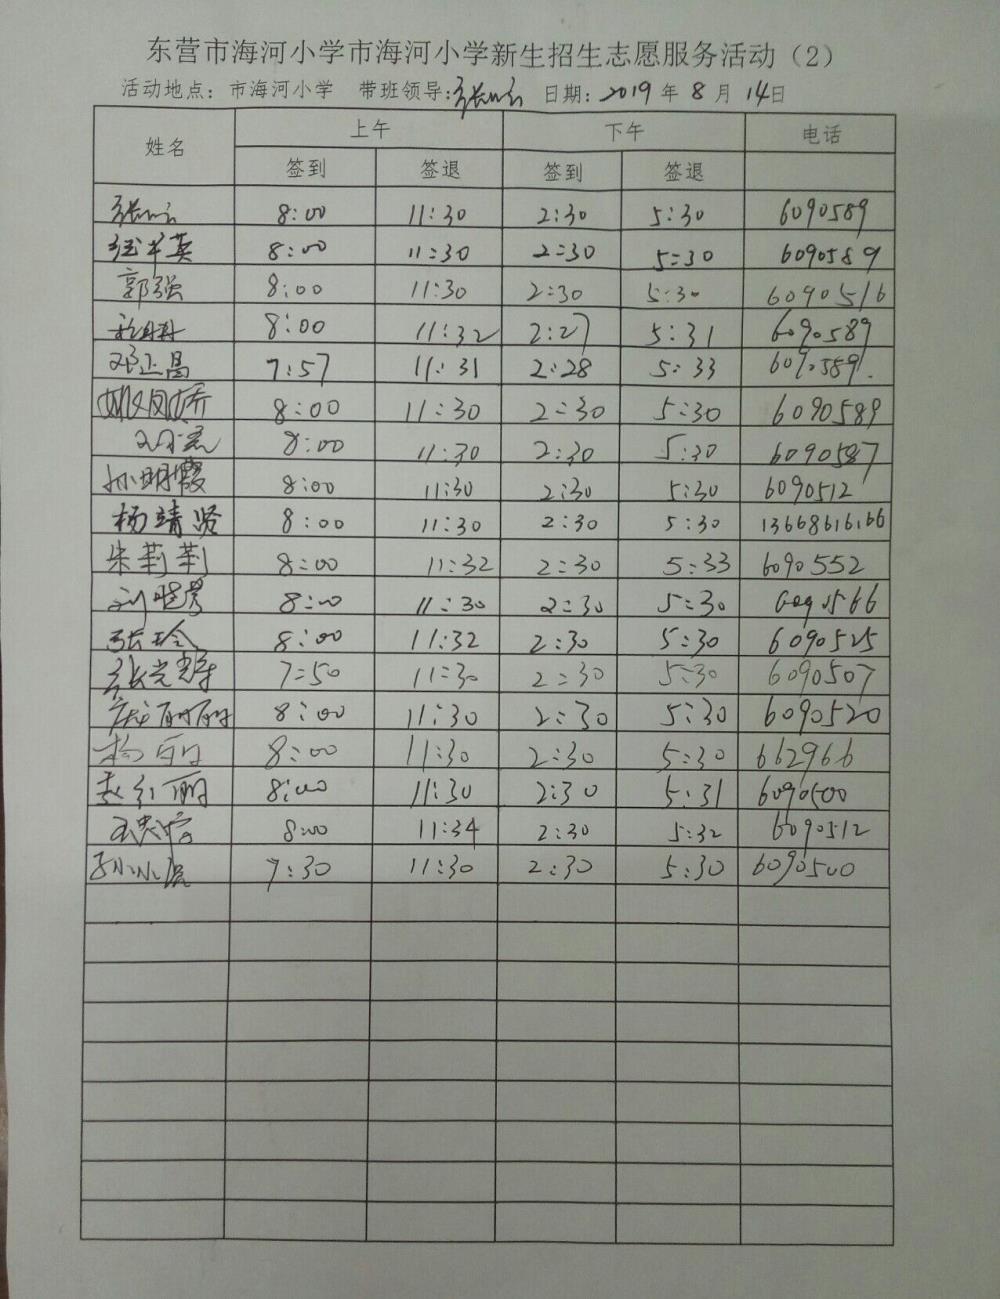 东营市海河小学市海河小学新生招生志愿服务活动（2）
活动地点：市海河小学 带班领导： 日期：2019年8月14日
姓名 上午 下午 电话
签到 签退 签到 签退
8:00 11:30 2:30 5:30 6090589
8:00 11:30 2:30 5:30 6090589
郭强 8:00 11:30 2:30 5:30 6090516
8:00 11:32 2:27 5:31 6090589
邓正昌 7:57 11:31 2:28 5:33 6090589.
姚凤娇 8:00 11:30 2:30 5:30 6090589
8:00 11:30 2:30 5:30 6090587
孙明霞 8:00 11:30 2:30 5:30 6090512
杨靖贤 8:00 11:30 2:30 5:30 13668616166
朱莉莉 8:00 11:32 2:30 5:33 6090552
8:00 11:30 2:30 5:30 6090566
张玲 8:00 11:32 2:30 5:30 6090525
7:50 11:30 2:30 5:30 6090507
庞丽丽 8:00 11:30 2:30 5:30 6090520
8:00 11:30 2:30 5:30 662966
赵红丽 8:00 11:30 2:30 5:31 6090500
8:00 11:34 2:30 5:32 6090512
7:30 11:30 2:30 5:30 6090500